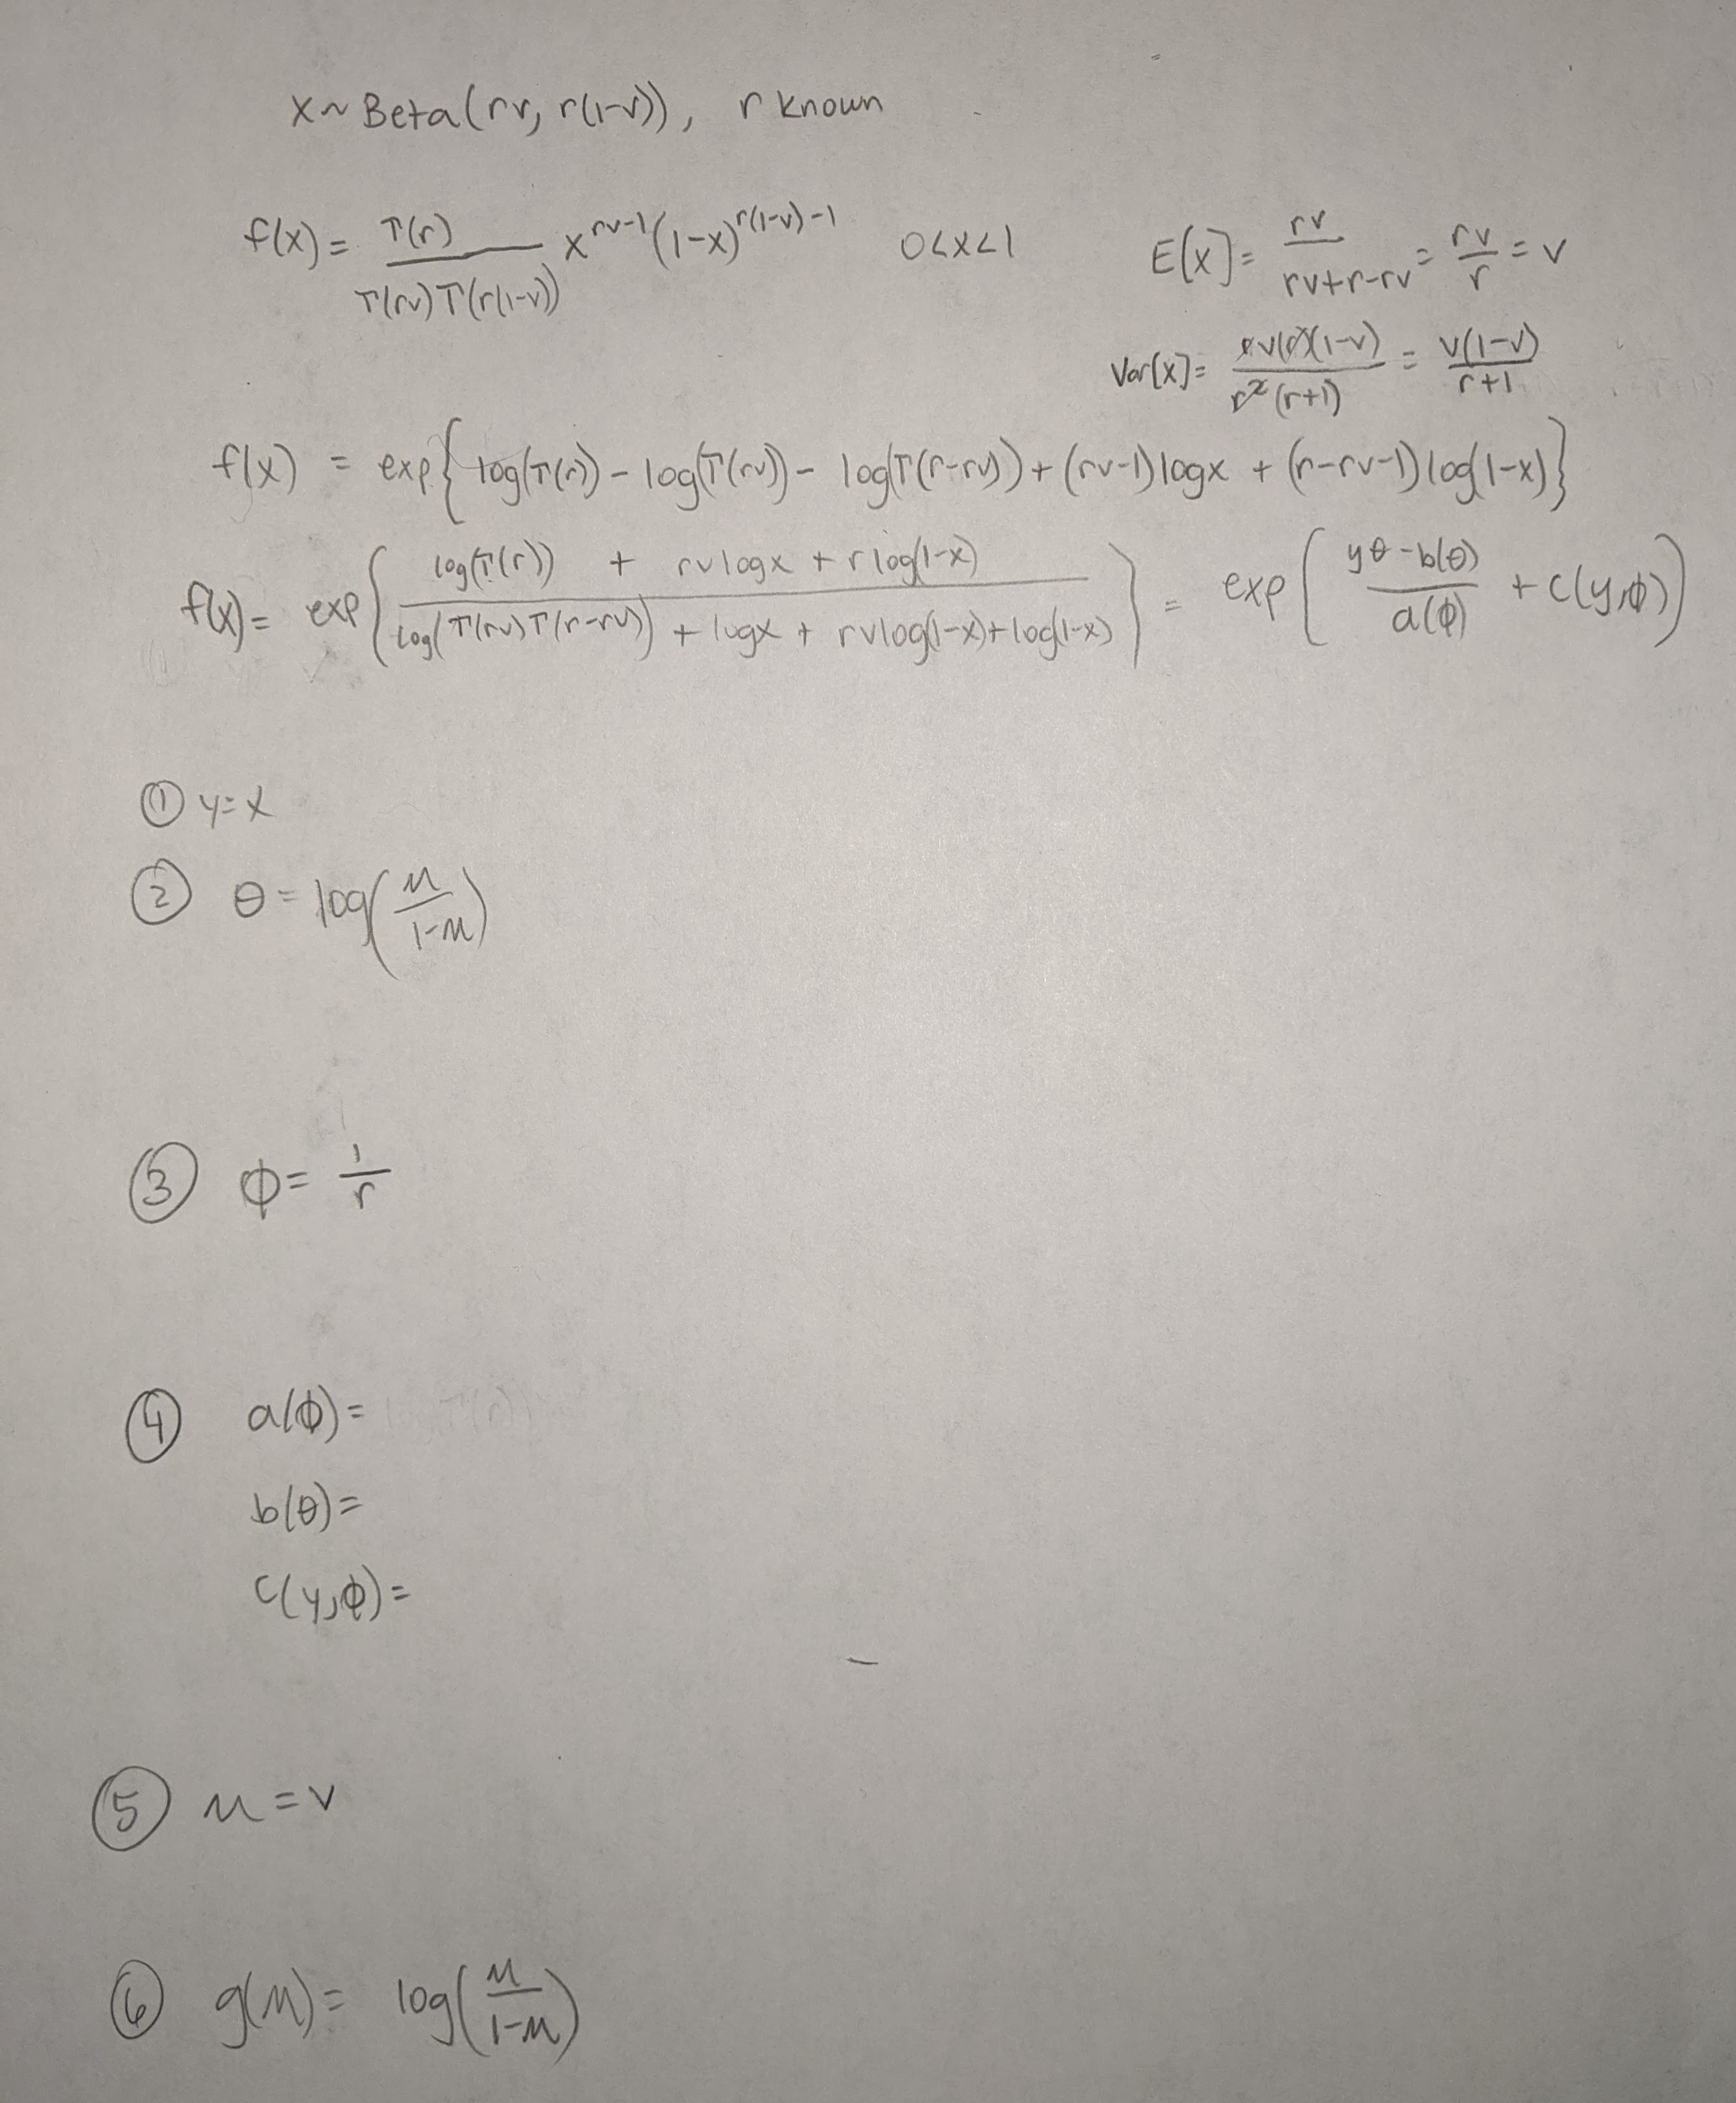 x ~ Beta(rv, r(1-v)), r known
f(x) = T(r) / T(rv)T(r(1-v)) x^{rv-1} (1-x)^{r(1-v)-1} 0<x<1
E[x] = rv / rv+r-rv = rv / r = v
Var[x] = rv(r)(1-v) / r^2(r+1) = v(1-v) / r+1
f(x) = exp{ log(T(r)) - log(T(rv)) - log(T(r-rv)) + (rv-1)logx + (r-rv-1)log(1-x) }
f(x) = exp{ log(T(r)) + rvlogx + rlog(1-x) / log(T(rv)T(r-rv)) + logx + rvlog(1-x)+log(1-x) } = exp( yθ-b(θ) / a(ϕ) + c(y,ϕ) )
① y=x
② θ = log(μ / 1-μ)
③ ϕ = 1 / r
④ a(ϕ) =
b(θ) =
c(y,ϕ) =
⑤ μ = v
⑥ g(μ) = log(μ / 1-μ)